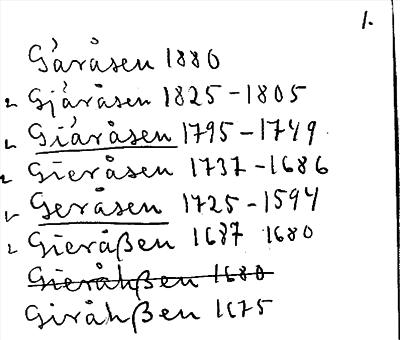 1.
Gåråsen 1880
Gjåråsen 1825-1805
Giåråsen 1795-1749
Gieråsen 1737-1686
Geråsen 1725-1594
Gieråßen 1687 1680
Gieråhßen 1680
Giråhßen 1675